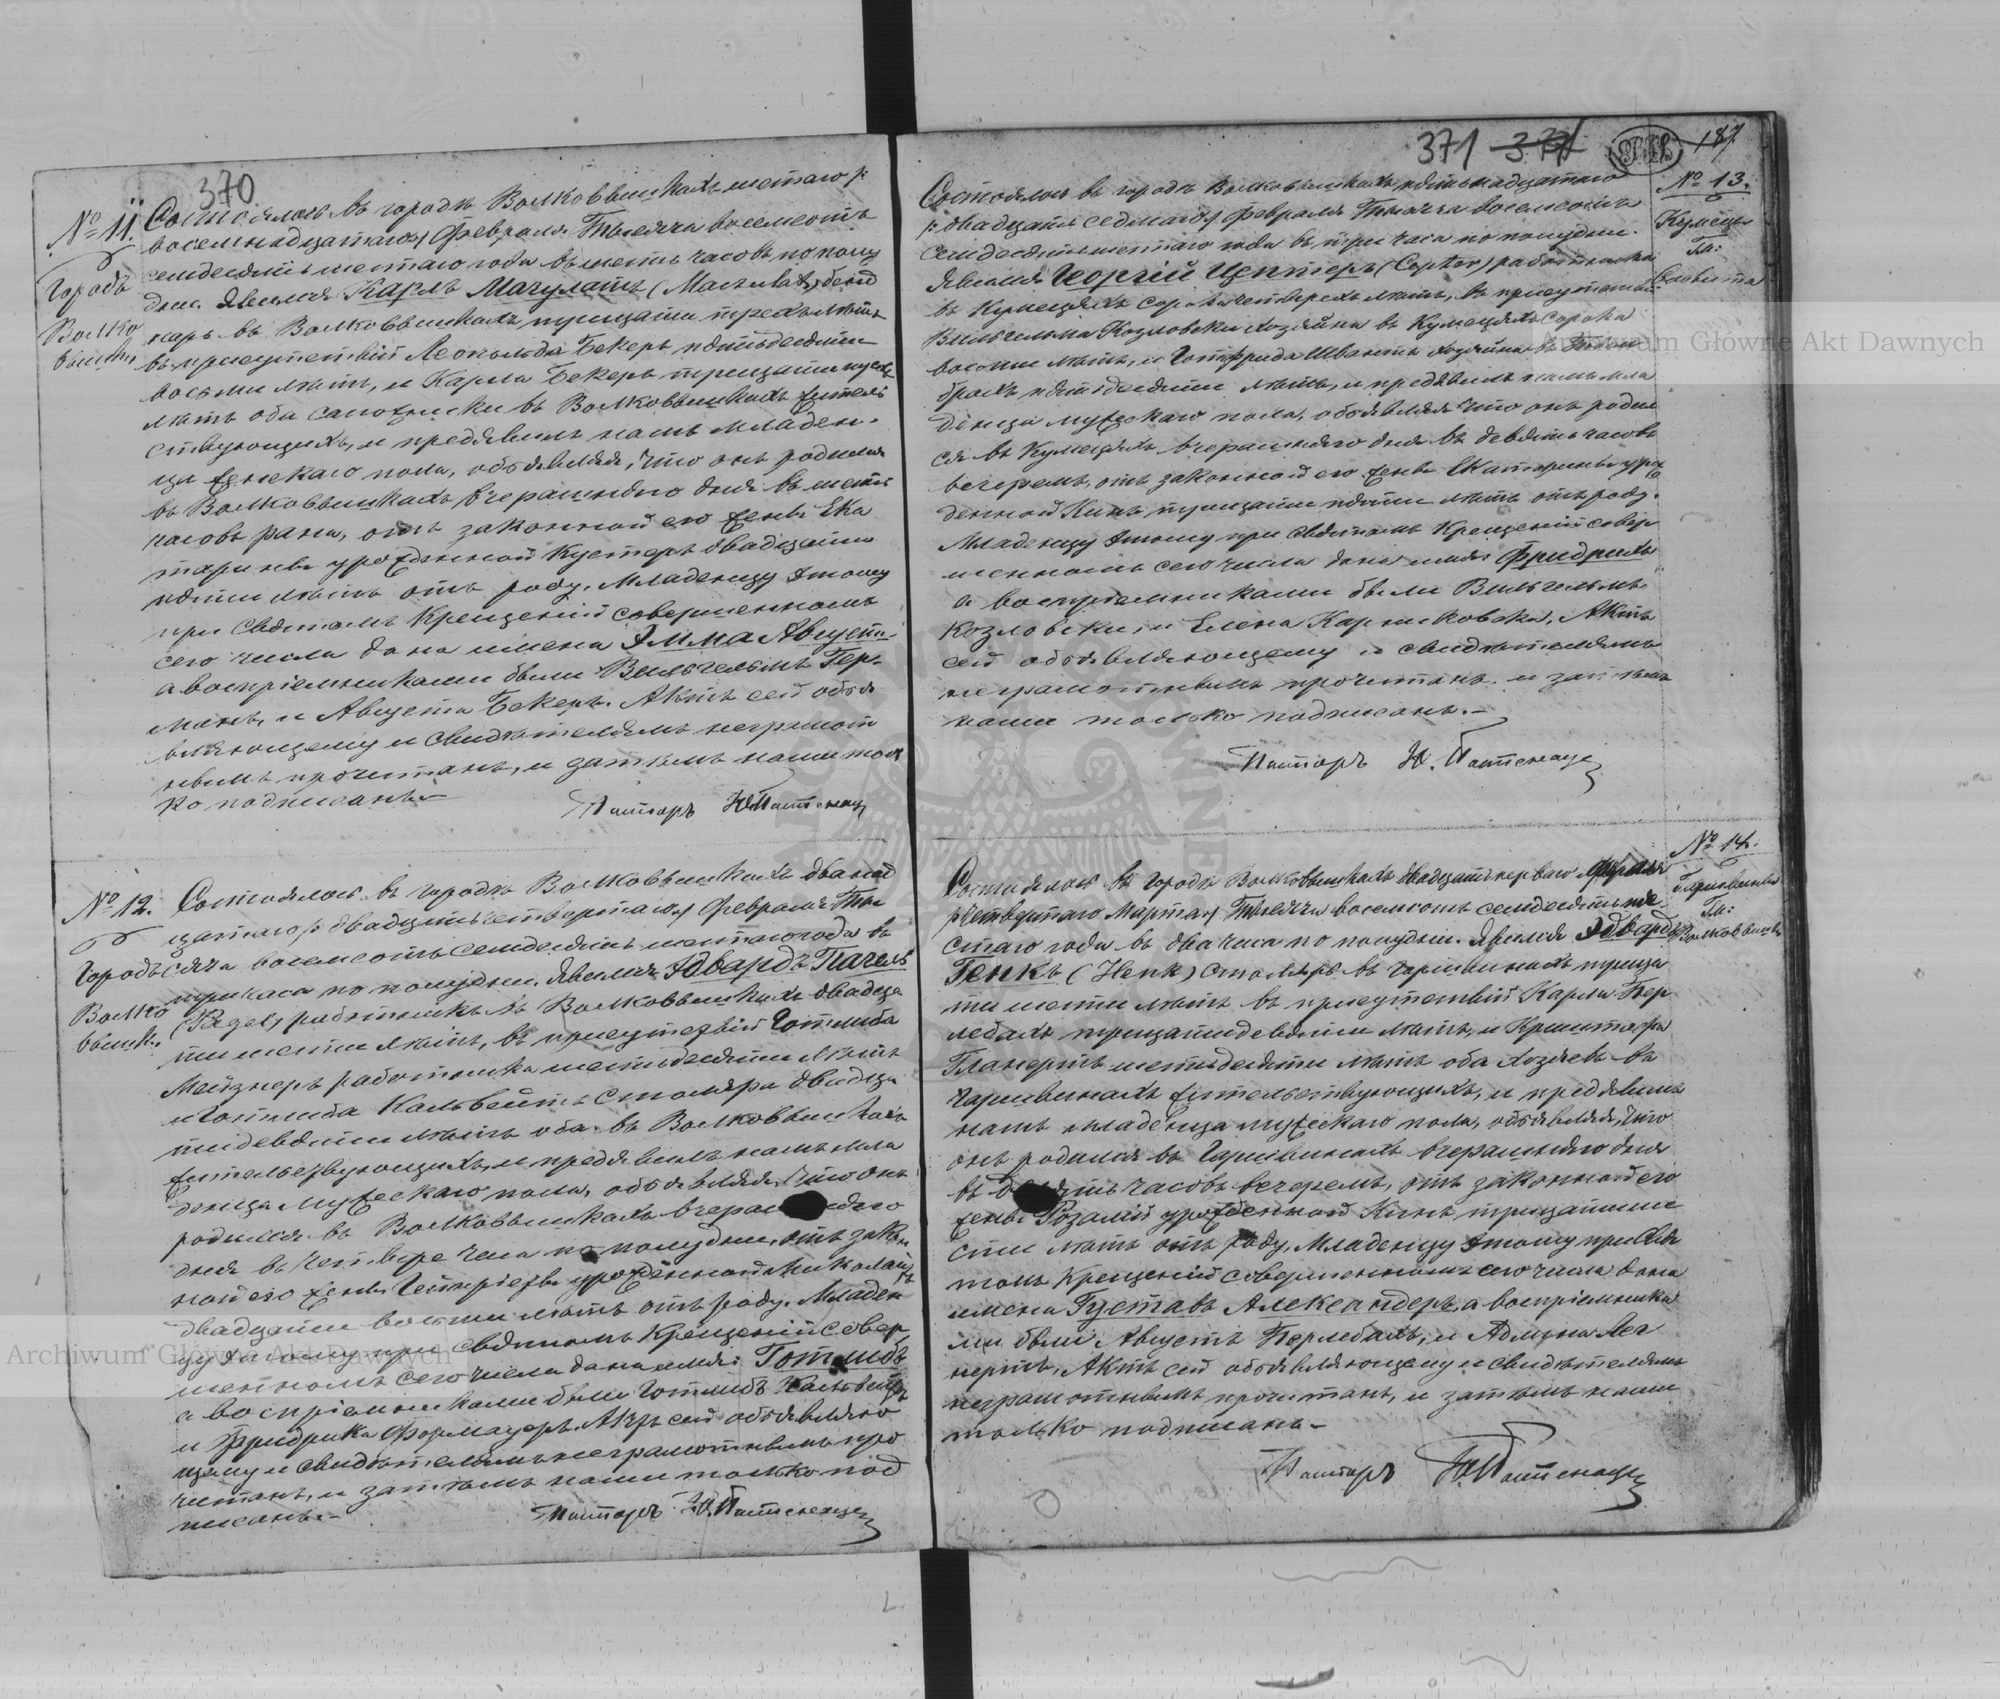 370
№ 11.
Городъ
Волко
вышки
Состоялось въ городѣ Волковышкахъ шестаго /:
восемнадцатаго:/ Февраля Тысяча восемсотъ
семдесять шестаго года въ шесть часовъ по полу
дни. Явился Карлъ Мачулатъ
карь въ Волковышкахъ тридцати трехъ лѣтъ
въ присутствіи Леопольда Бекеръ пятьдесяти
восьми лѣтъ, и Карла Бекеръ тридцати
лѣтъ оба сапожники въ Волковышкахъ житель
ствующихъ, и предъявилъ намъ младен-
ца женскаго пола, объявляя, что онъ родился
въ Волковышкахъ вчерашняго дня въ шесть
часовъ рана, отъ законной его жены Ека
тарины урожденной Кустеръ двадцати
пяти лѣтъ отъ роду. Младенцу этому
при Святомъ Крещеніи совершенномъ
сего числа дана имена Эмма Августа
а воспріемниками были Вильгельмъ Гер-
манъ, и Августа Бекеръ. Актъ сей объя
вляющему и свидѣтелямъ неграмот
нымъ прочитанъ, и затѣмъ нами толь
ко подписанъ.-
Пасторъ
№ 12.
Городъ
Волко
вышки
Состоялось въ городѣ Волковышкахъ двѣнад
цатаго /: двадцать четвертаго:/ Февраля Ты
сяча восемсотъ семдесять шестаго года въ
три часа по полудни. Явился Эдвардъ Пагель
(Pagel) работникъ въ Волковышкахъ двадца
ти шести лѣтъ, въ присутствіи Готлиба
Мейзнеръ работника шестьдесяти лѣтъ
и Готлиба Кальвейтъ столяра двадца
ти девяти лѣтъ оба въ Волковышкахъ
жительствующихъ, и предъявилъ намъ мла
денца мужескаго пола, объявляя, что онъ
родился въ Волковышкахъ вчерашняго
дня въ четыре часа по полудни, отъ закон
ной его жены Генріеты урожденной Николай
двадцати восьми лѣтъ отъ роду. Младен
цу этому при святомъ Крещеніи совер
шенномъ сего числа дана имя: Готлибъ
а воспріемниками были Готлибъ Кальвейтъ
и Фридрика Формацеръ. Актъ сей объявляю
щему и свидѣтелямъ неграмотнымъ про
читанъ, и затѣмъ нами только под
писанъ.-
Пасторъ
371 371 187
№ 13.
Кумецы
Гм:
Состоялось въ городѣ Волковышкахъ, пятьнадцатаго
/: двадцать седмаго:/ Февраля Тысяча восемсотъ
семдесять шестаго года въ три часа по полудни.
Явился Георгій Цептеръ (Ceptor) работникъ
въ Кумецяхъ сорока четырехъ лѣтъ, въ присутствіи
Вильгельма Козловски хозяина въ Кумецяхъ сорока
восьми лѣтъ, и Готфрида Швантъ хозяина въ
брахъ пятидесяти лѣтъ, и предъявилъ намъ мла
денца мужескаго пола, объявляя что онъ родил
ся въ Кумецяхъ вчерашняго дня въ девять часовъ
вечеромъ, отъ законной его жены Екатерины урож
денной Кинъ тридцати пяти лѣтъ отъ роду.
Младенцу этому при святомъ Крещеніи совер
шенномъ сего числа дана имя: Фридрихъ
а воспріемниками были Вильгельмъ
Козловски, и Елена Карниковска. Актъ
сей объявляющему и свидѣтелямъ
неграмотнымъ прочитанъ, и затѣмъ
нами только подписанъ.-
Пасторъ
№ 14.
Гм:
Волковышки
Состоялось въ городѣ Волковышкахъ двадцать перваго Февраля
/: четвертаго Марта:/ Тысяча восемсотъ семдесять ше
стаго года въ два часа по полудни. Явился Эдвардъ
Генкъ (Henk) столяръ въ тридца
ти шести лѣтъ въ присутствіи Карла Пер
лебахъ тридцати девяти лѣтъ, и Криштофа
Гланертъ шестьдесяти лѣтъ оба хозяевъ въ
жительствующихъ, и предъявилъ
намъ младенца мужескаго пола, объявляя, что
онъ родился въ вчерашняго дня
въ часовъ вечеромъ, отъ законной его
жены Розаліи урожденной Кинъ, тридцати ше
сти лѣтъ отъ роду. Младенцу этому при Свя
томъ Крещеніи совершенномъ сего числа дана
имена Густавъ Александеръ, а воспріемника
ми были Августъ Перлебахъ, и
Актъ сей объявляющему и свидѣтелямъ
неграмотнымъ прочитанъ, и затѣмъ нами
только подписанъ.-
Пасторъ
Archiwum Główne Akt Dawnych
Archiwum Główne Akt Dawnych